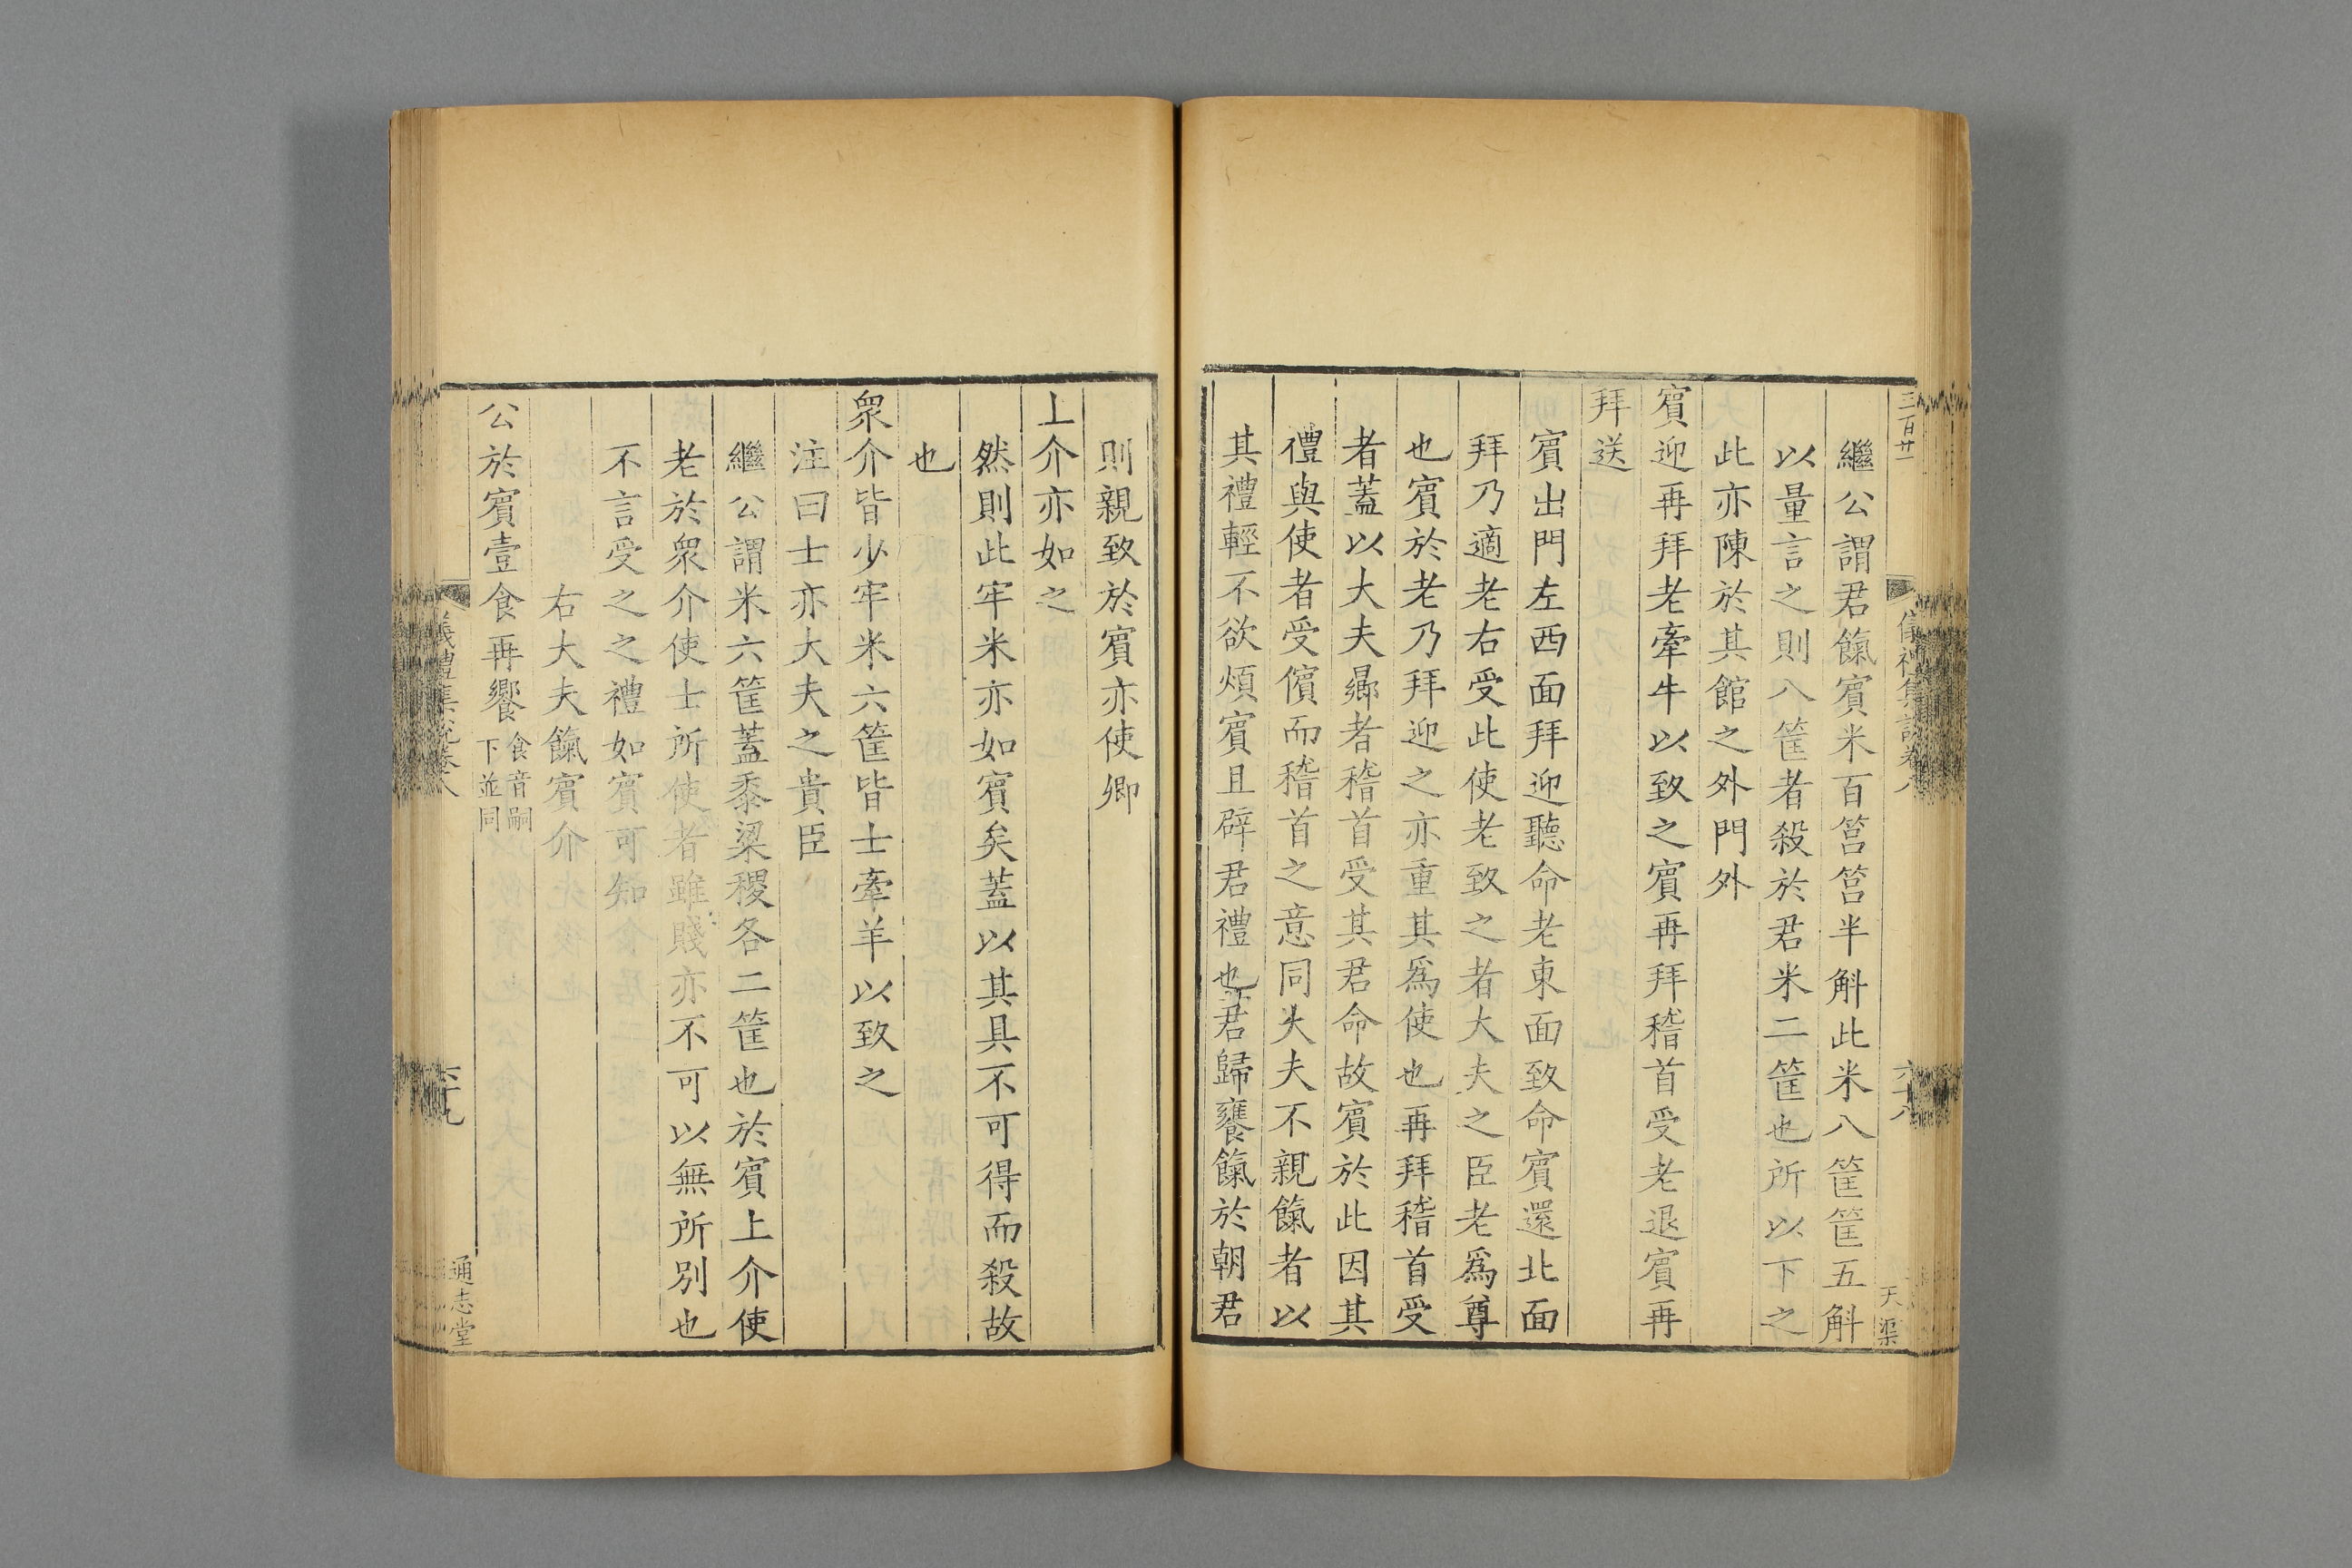 三百廿一
儀禮集說卷八
六十八
天渠
繼公謂君餼賓米百筥筥半斛此米八筐筐五斛
以量言之則八筐者殺於君米二筐也所以下之
此亦陳於其館之外門外
賓迎再拜老牽牛以致之賓再拜稽首受老退賓再
拜送
賓出門左西面拜迎聽命老東面致命賓還北面
拜乃適老右受此使老致之者大夫之臣老爲尊
也賓於老乃拜迎之亦重其爲使也再拜稽首受
者蓋以大夫歸者稽首受其君命故賓於此因其
禮與使者受儐而稽首之意同大夫不親餼者以
其禮輕不欲煩賓且辟君禮也君歸饔餼於朝君
則親致於賓亦使卿
上介亦如之
然則此牢米亦如賓矣蓋以其具不可得而殺故
也
衆介皆少牢米六筐皆士牽羊以致之
注曰士亦大夫之貴臣
繼公謂米六筐蓋黍粱稷各二筐也於賓上介使
老於衆介使士所使者雖賤亦不可以無所別也
不言受之之禮如賓可知
右大夫餼賓介
公於賓壹食再饗食音嗣下並同
儀禮集說卷八
六十九
通志堂